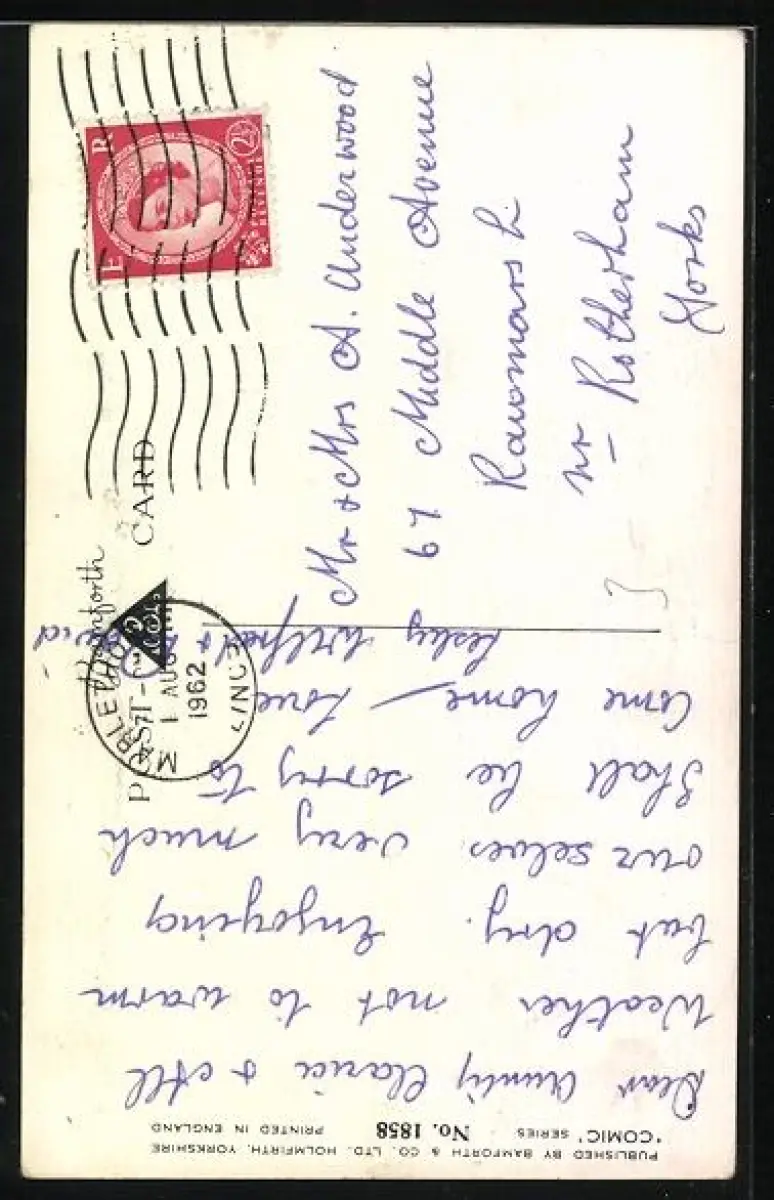 PUBLISHED BY BAMFORTH & CO. LTD. HOLMFIRTH, YORKSHIRE
"COMIC" SERIES No. 1858 PRINTED IN ENGLAND
Dear Aunty Clarice & All
Weather not to warm
but dry. Enjoying
our selves very much
Shall be sorry to
come home - Love
Lesley Wilfred & David
Bamforth
POST CARD
MABLETHORPE
LINCS
1 AUG
1962
E R
2½
POSTAGE
REVENUE
Mr & Mrs A. Underwood
67 Middle Avenue
Rawmarsh
nr Rotherham
Yorks